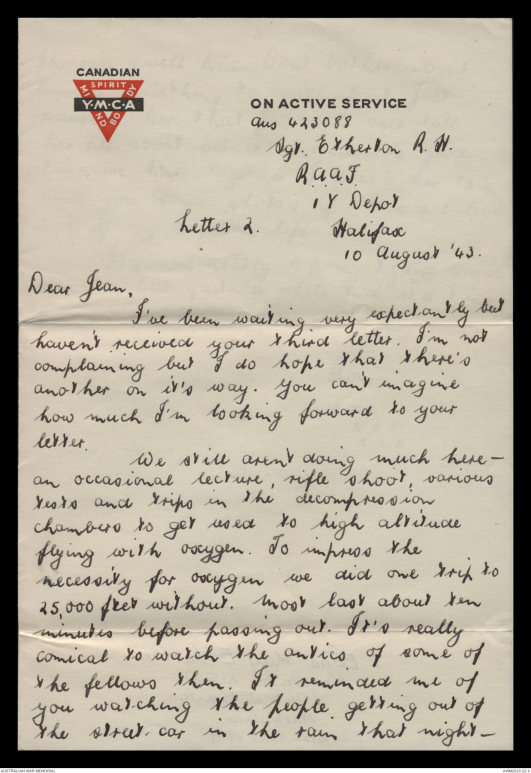 CANADIAN
SPIRIT
MIND
BODY
Y·M·C·A
ON ACTIVE SERVICE
Aus 423088
Sgt. Etherton R. H.
R.A.A.F.
1 Y Depot
Letter 2. Halifax
10 August '43.
Dear Jean,
I've been waiting very expectantly but
haven't received your third letter. I'm not
complaining but I do hope that there's
another on it's way. You can't imagine
how much I'm looking forward to your
letter.
We still aren't doing much here —
an occasional lecture, rifle shoot, various
tests and trips in the decompression
chambers to get used to high altitude
flying with oxygen. To impress the
necessity for oxygen we did one trip to
25,000 feet without. Most last about ten
minutes before passing out. It's really
comical to watch the antics of some of
the fellows then. It reminded me of
you watching the people getting out of
the street-car in the rain that night —
AUSTRALIAN WAR MEMORIAL